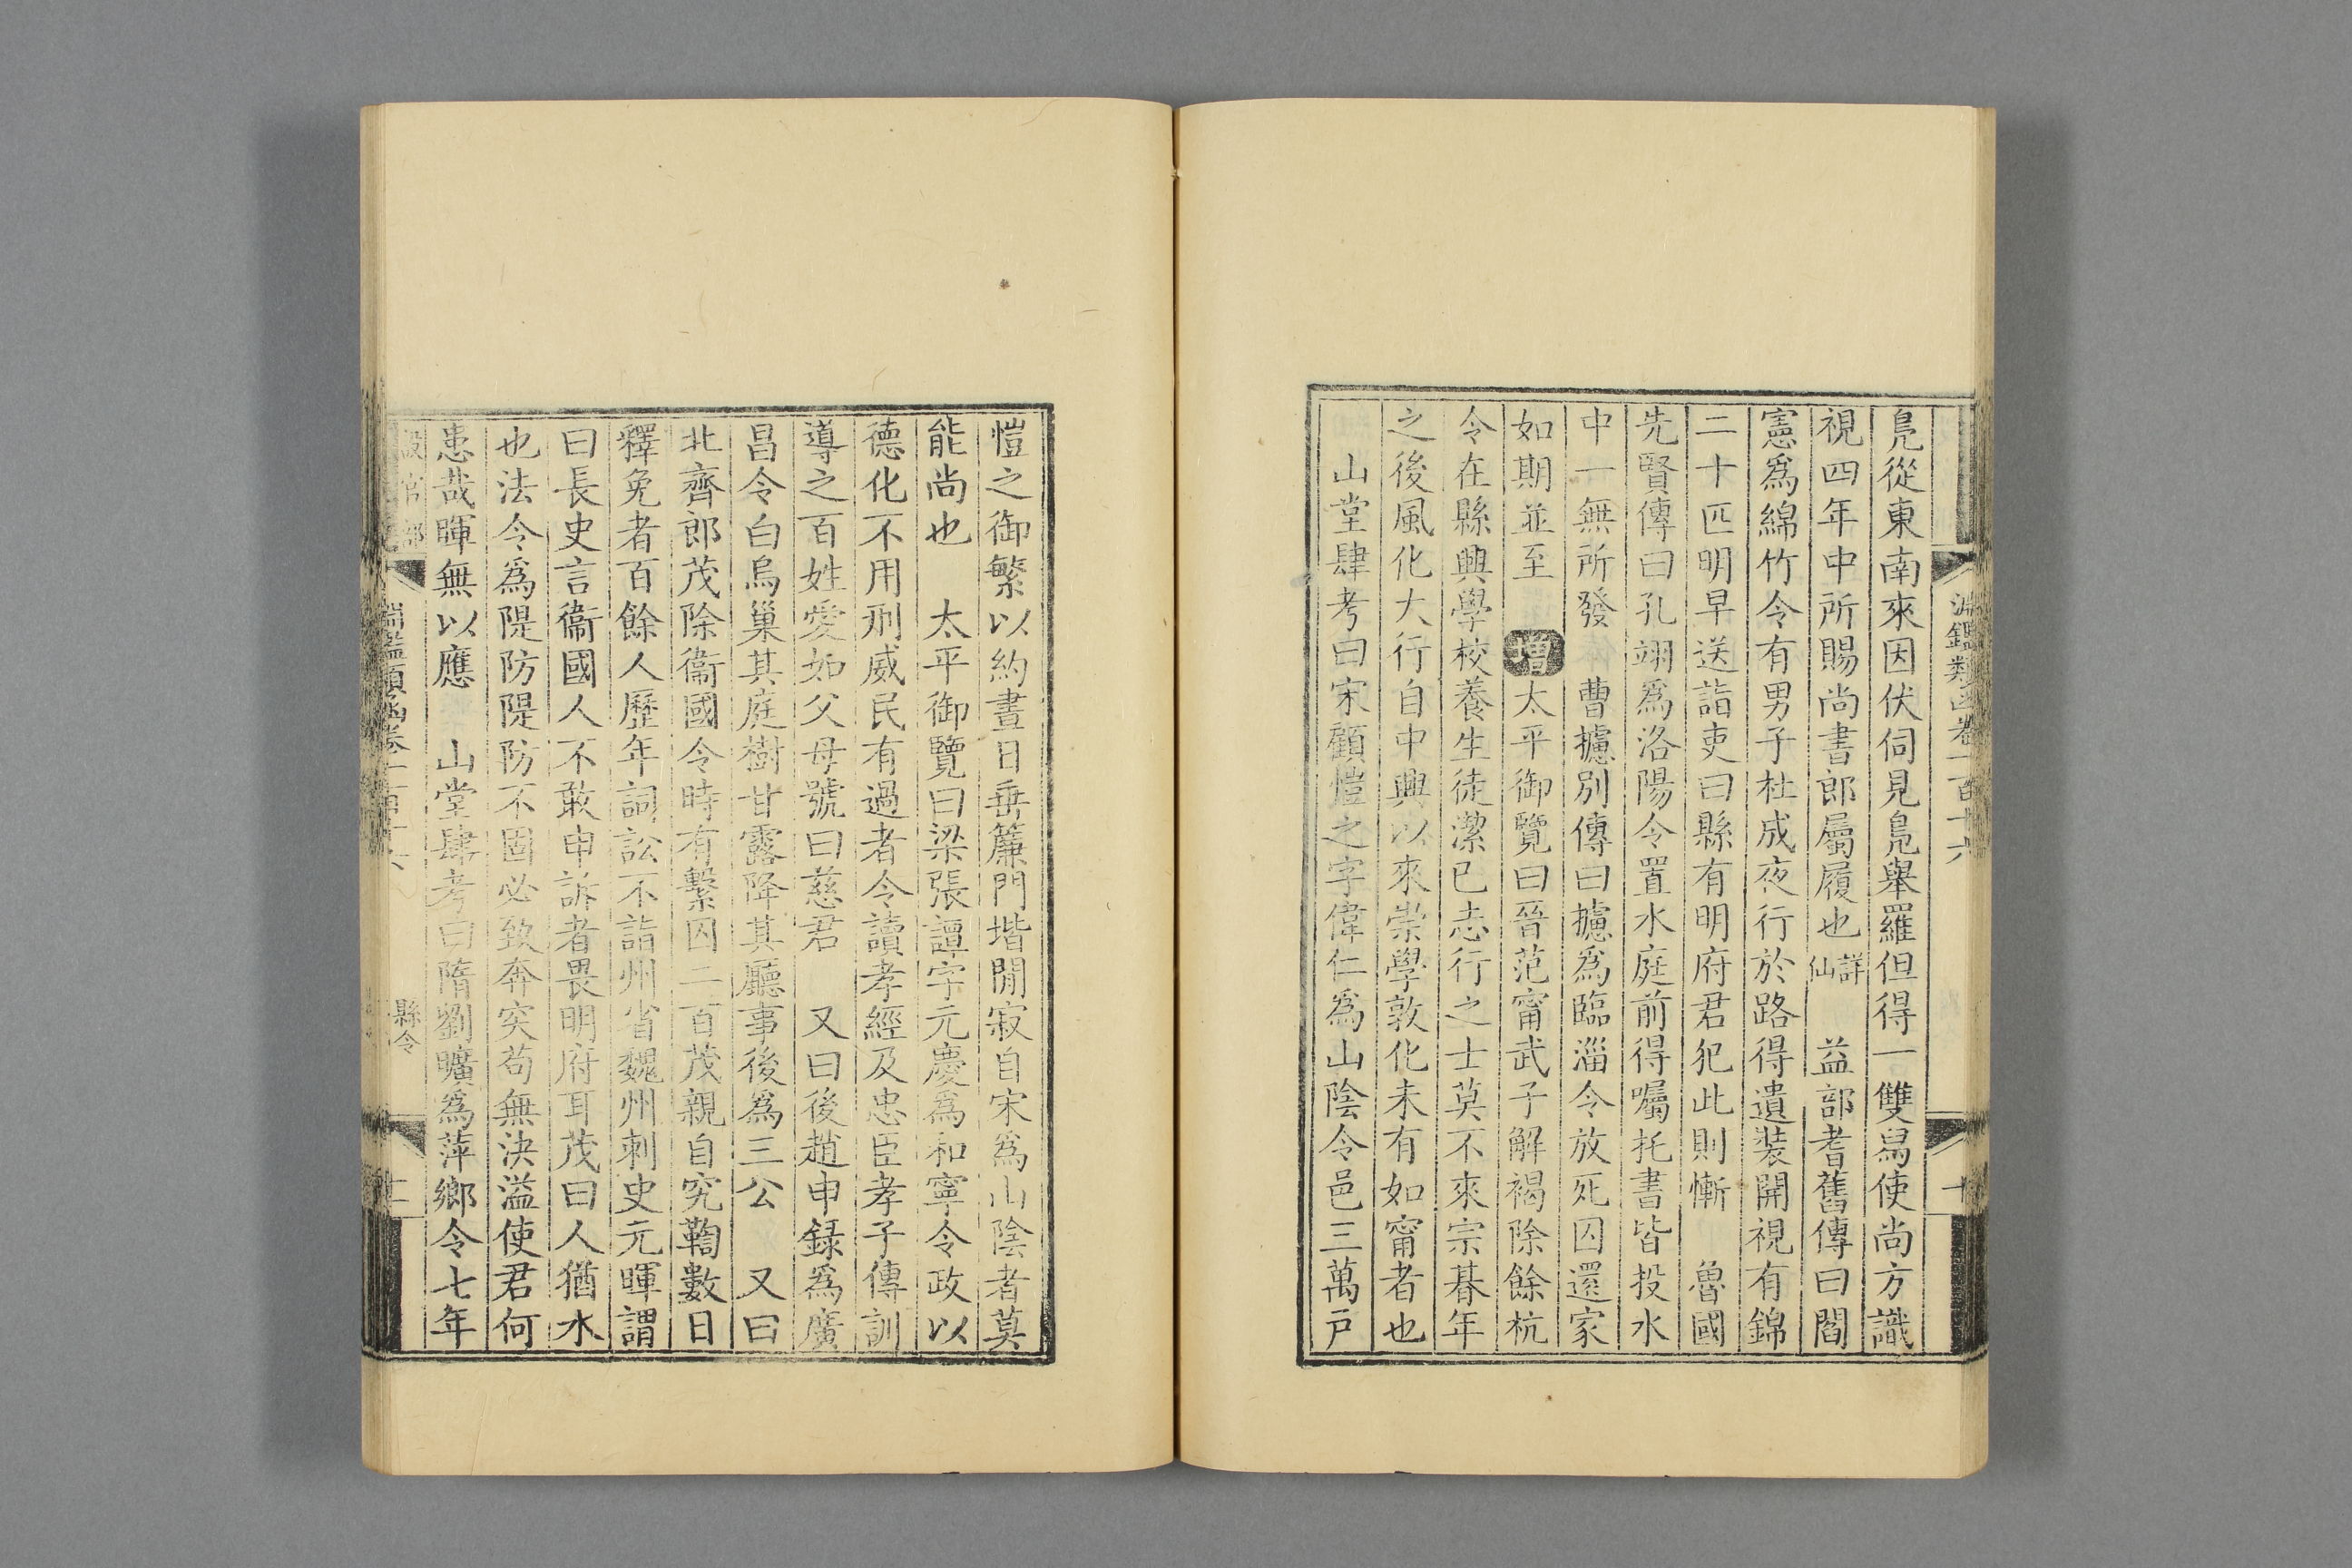 淵鑑類函卷一百十六
十
鳧從東南來因伏伺見鳧舉羅但得一雙舄使尚方識
視四年中所賜尚書郎屬履也詳仙 益部耆舊傳曰閻
憲爲綿竹令有男子杜成夜行於路得遺裝開視有錦
二十匹明早送詣吏曰縣有明府君犯此則慚 魯國
先賢傳曰孔翊爲洛陽令置水庭前得囑托書皆投水
中一無所發 曹攄別傳曰攄爲臨淄令放死囚還家
如期並至 增太平御覽曰晉范甯武子解褐除餘杭
令在縣興學校養生徒潔已志行之士莫不來宗朞年
之後風化大行自中興以來崇學敦化未有如甯者也
山堂肆考曰宋顧愷之字偉仁爲山陰令邑三萬戸
愷之御繁以約晝日垂簾門堦閒寂自宋爲山陰者莫
能尚也 太平御覽曰梁張譚字元慶爲和寧令政以
德化不用刑威民有過者令讀孝經及忠臣孝子傳訓
導之百姓愛如父母號曰慈君 又曰後趙申録爲廣
昌令白烏巢其庭樹甘露降其廳事後爲三公 又曰
北齊郎茂除衞國令時有繫囚二百茂親自究鞫數日
釋免者百餘人歷年詞訟不詣州省魏州刺史元暉謂
曰長史言衞國人不敢申訴者畏明府耳茂曰人猶水
也法令爲隄防隄防不固必致奔突苟無決溢使君何
患哉暉無以應 山堂肆考曰隋劉曠爲萍鄉令七年
設官部
淵鑑類函卷一百十六
縣令